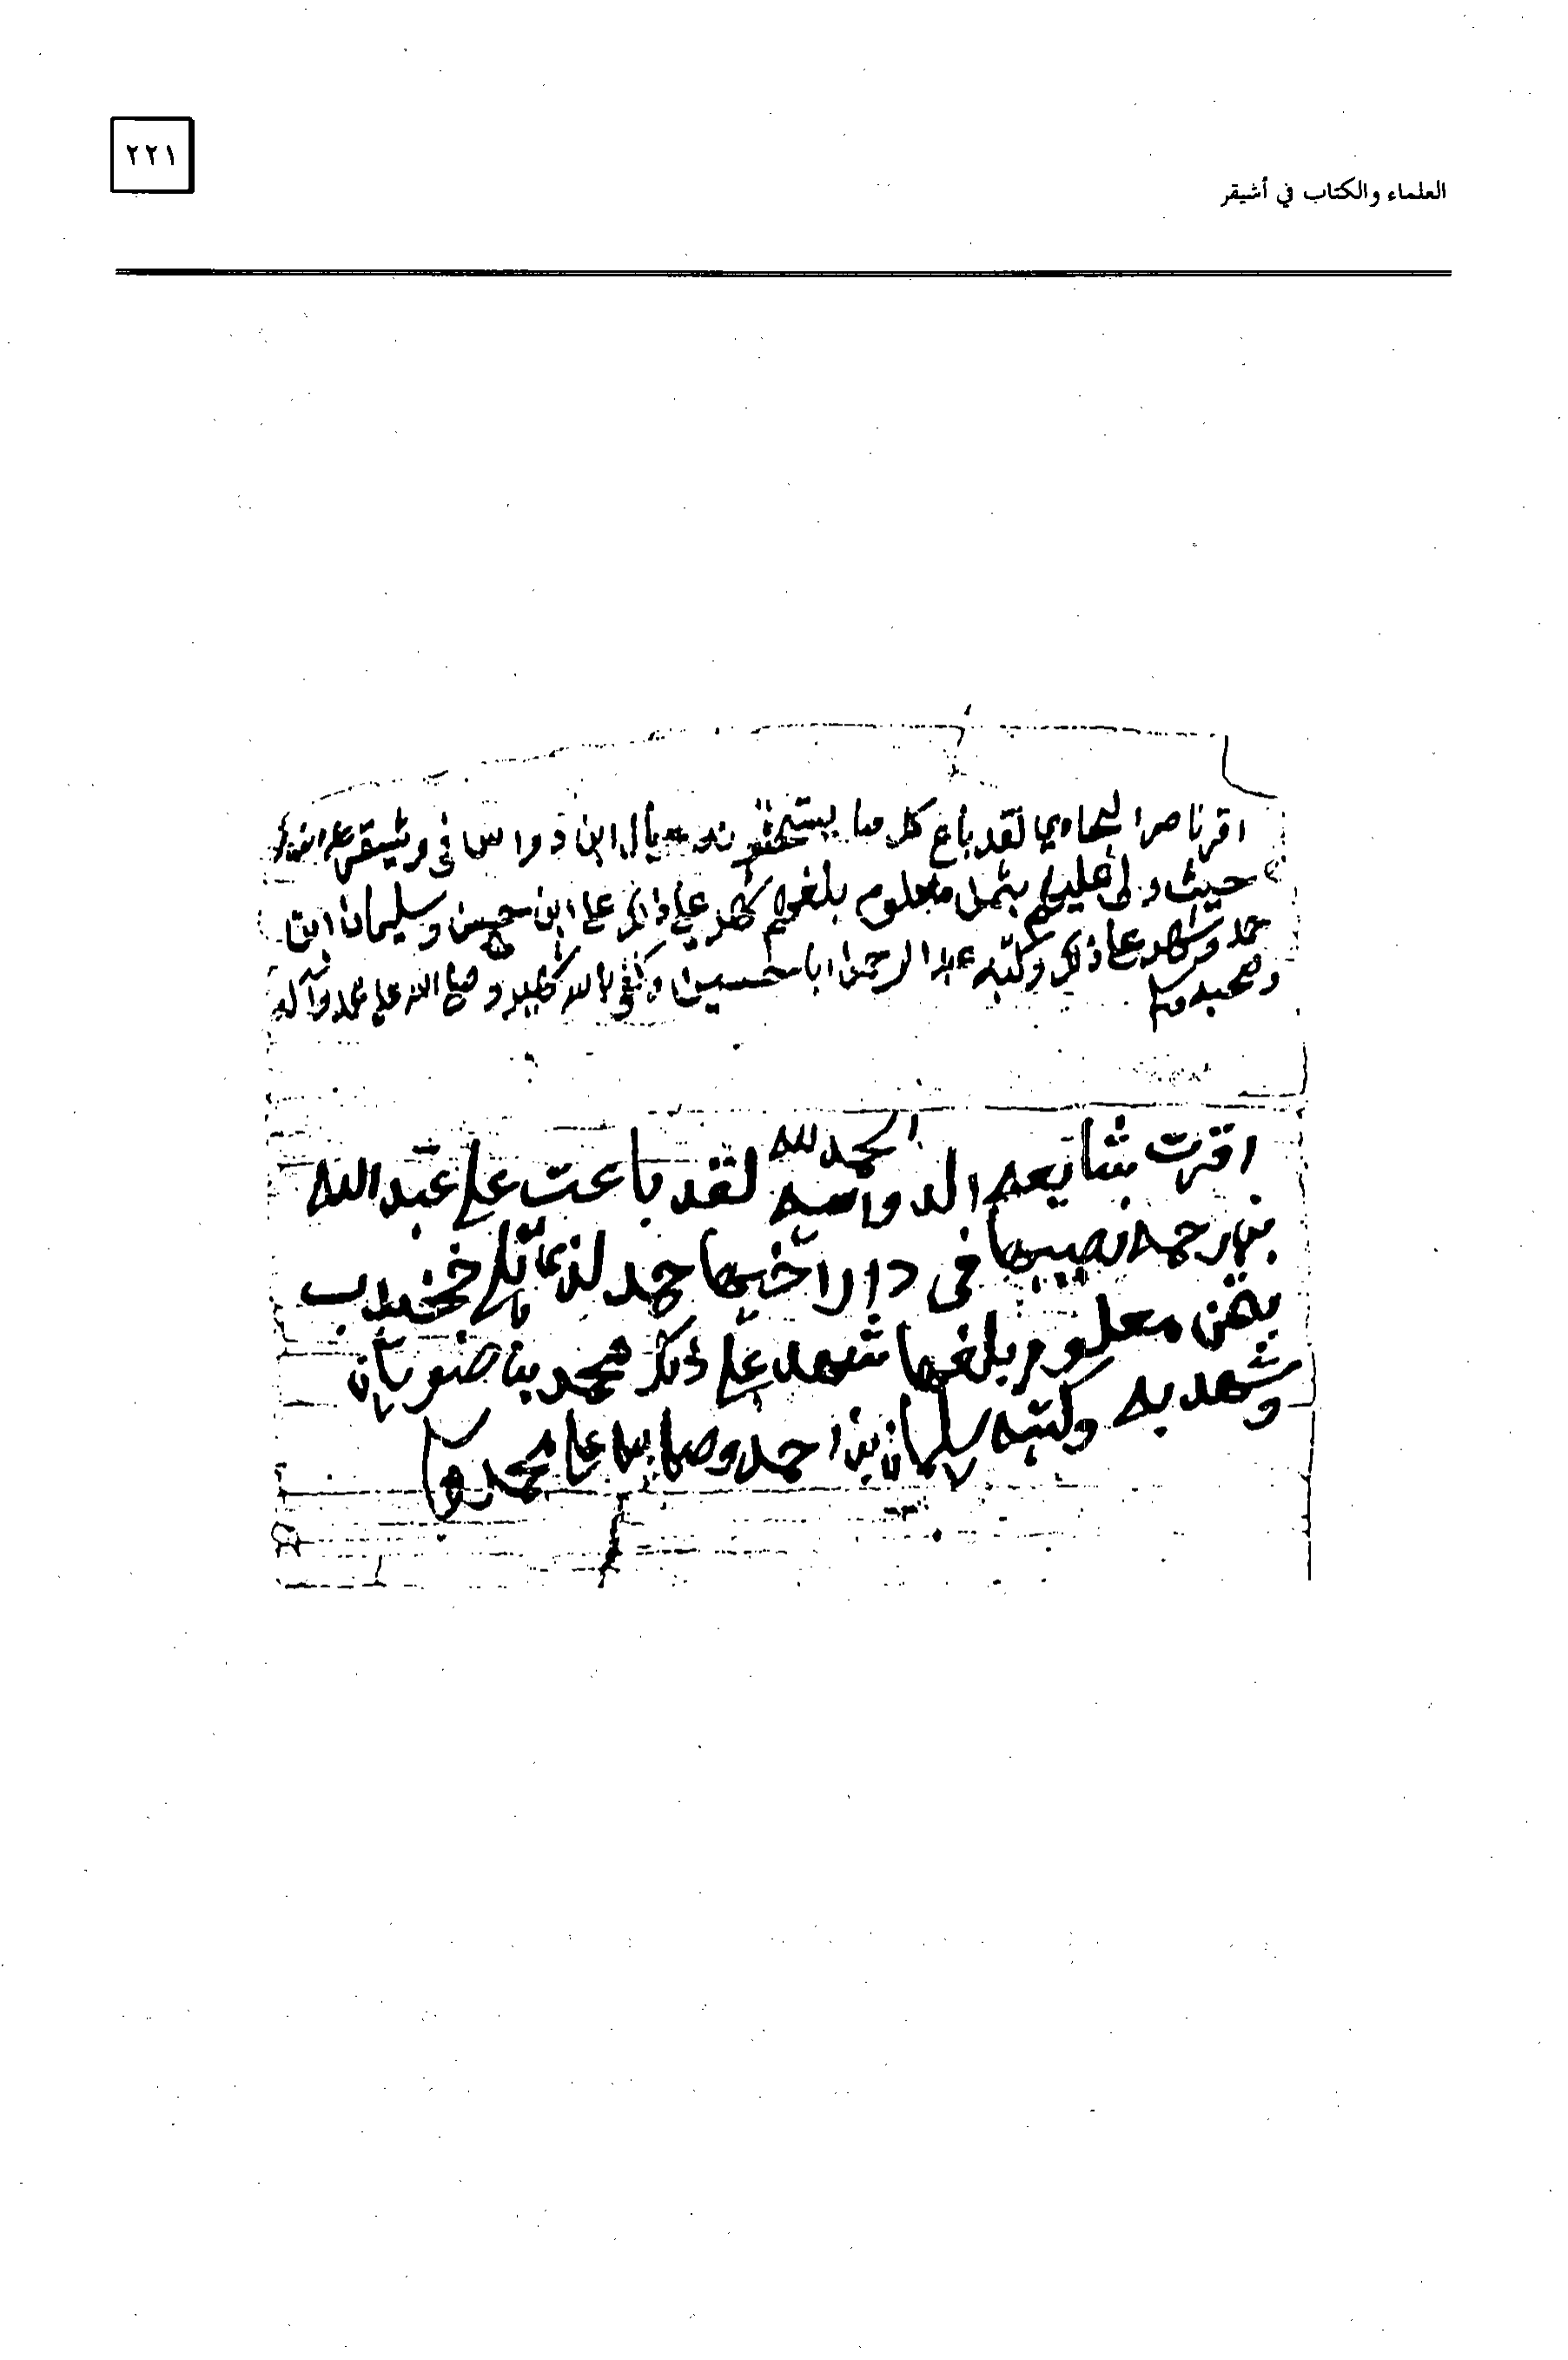 ٢٢١
العلماء والكتاب في أشيقر
اقر ناصر لقد باع كل ما يستحقونه عيال ابن دواس في وشيقر على
حيث ولي عليهم بثمن معلوم بلغهم شهد على ذلك علي ابن حسن وسليمان ابن
حمد وشهد على ذلك وكتبه عبد الرحمن ابا حسين وكفى بالله شهيد وصلى الله على محمد وآله
وصحبه وسلم
الحمد لله
اقرت شايعه الدواسيه لقد باعت على عبد الله
بن رحمه نصيبها في دار اخيها حمد
بثمن معلوم بلغها شهد على ذلك محمد بن
وشهد به وكتبه سليمان بن احمد وصلى الله على محمد